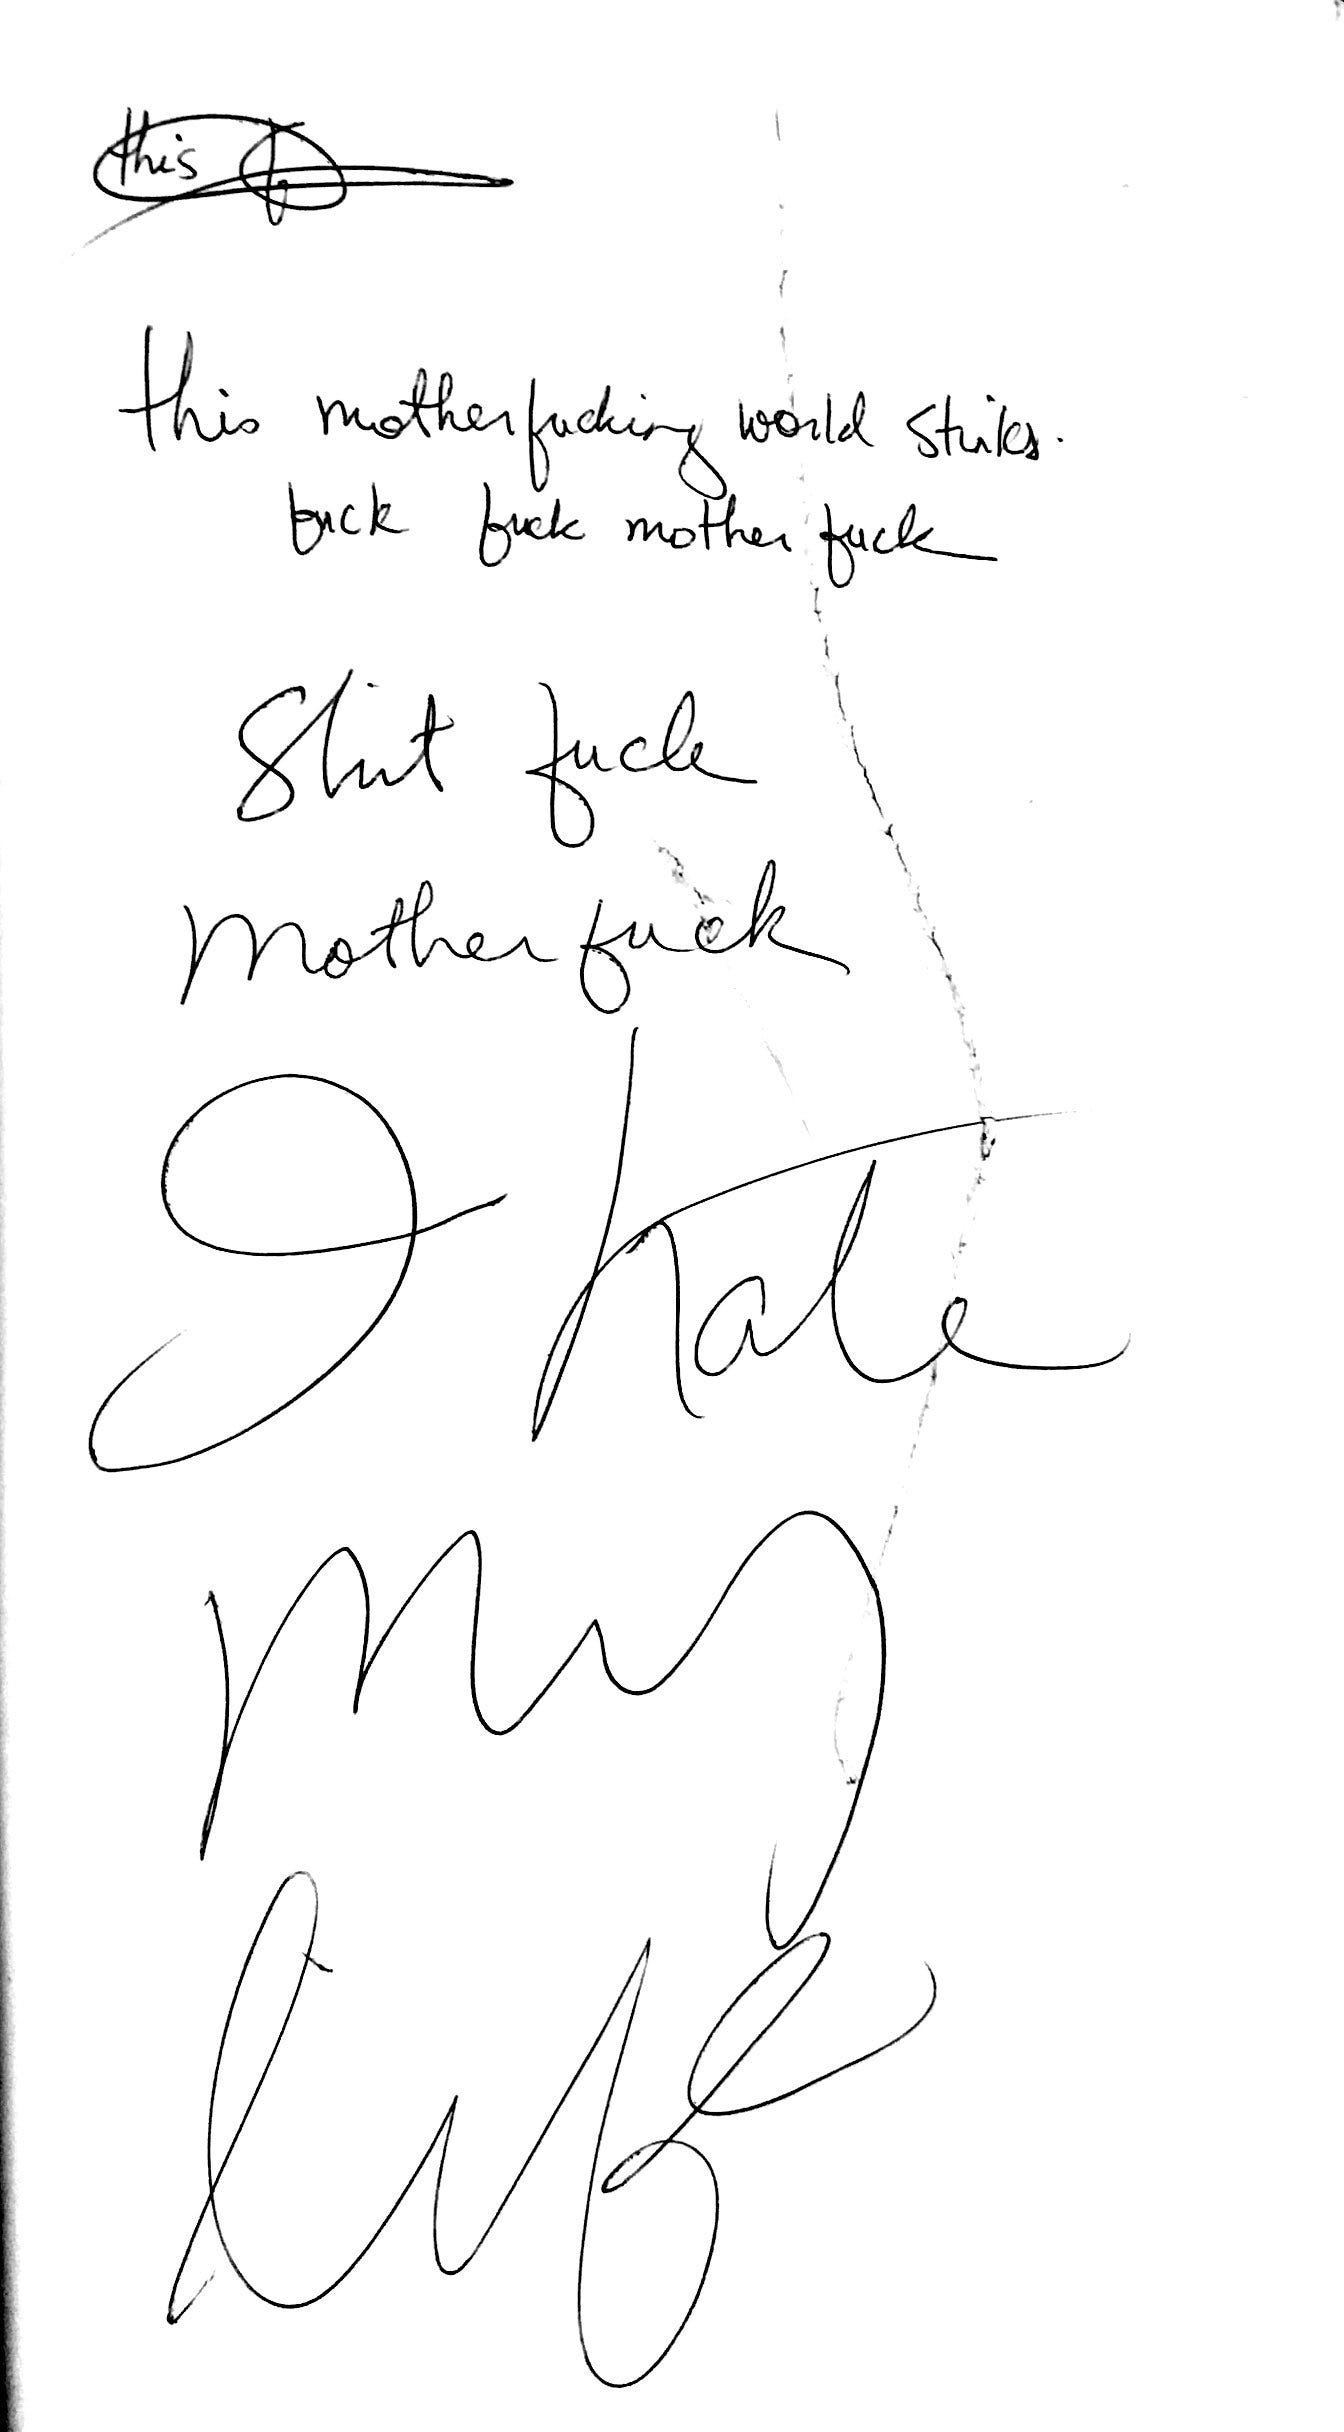 this f
this motherfucking world stinks.
fuck fuck motherfuck
Shit fuck
Motherfuck
I hate
my
life